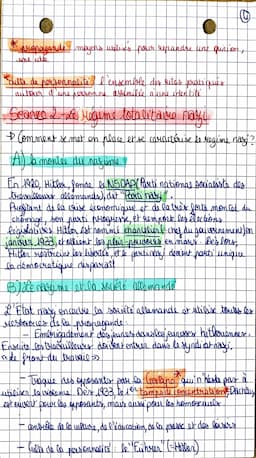 propagande moyens utilisés pour répandre une opinion,
une idée
Culte de personnalité l'ensemble des rites pratiqués
autour d'une personne assimilée à une identité
Séance 2 - Le régime totalitaire nazi
→ Comment se met en place et se caractérise le régime nazi ?
A) la montée du nazisme
En 1920, Hitler fonde le NSDAP (Parti national socialiste des
travailleurs allemands), dit Parti nazi.
Profitant de la crise économique et de la très forte montée du
chômage, son parti progresse et remporte les élections
législatives. Hitler est nommé chancelier (chef du gouvernement) en
janvier 1933, et obtient les pleins pouvoirs en mars. Dès lors,
Hitler restreint les libertés, et le parti nazi devient parti unique
la démocratie disparaît
B) Le nazisme et la société allemande
L'État nazi encadre la société allemande et utilise toutes les
de la propagande
- Embrigadement des jeunes jeunesses hitlériennes.
Ensuite les travailleurs doivent entrer dans le syndicat nazi,
"le front du travail"
- Traque des opposants par la Gestapo, qui n'hésite pas à
utiliser la Dès 1933, le 1er camp de concentration Dachau,
est ouvert pour les opposants, mais aussi pour les homosexuels.
- contrôle de la culture, de l'éducation, de la presse et des loisirs
- Culte de la personnalité : le "Führer" (= Hitler)